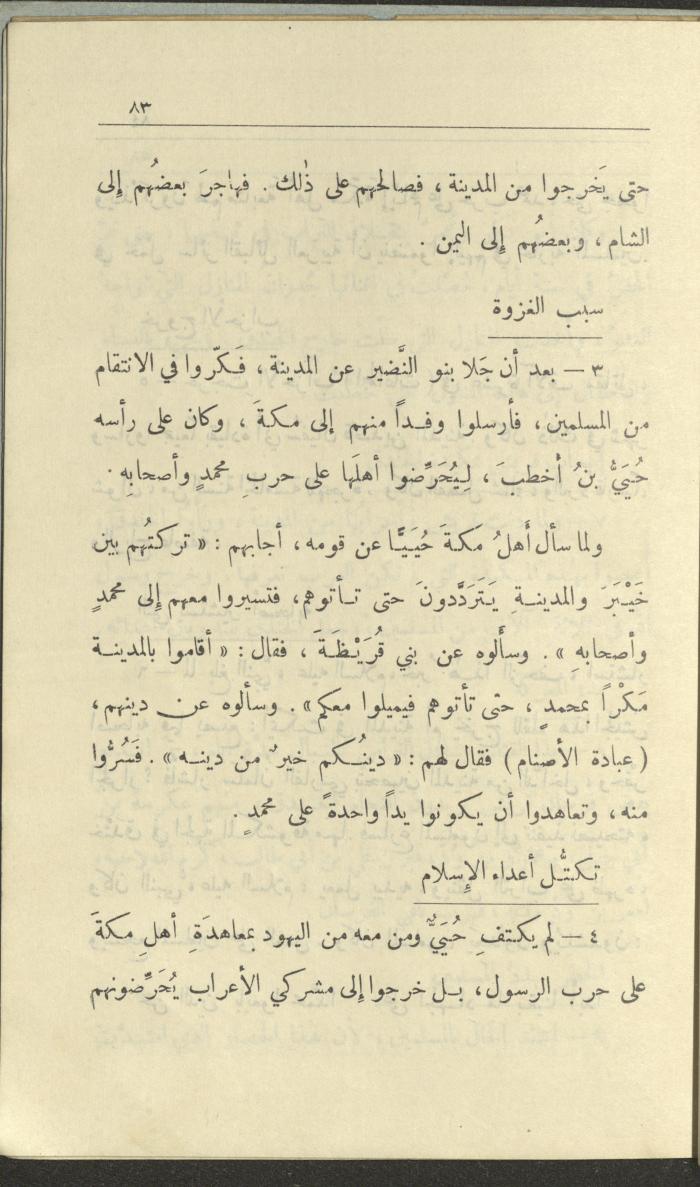 ٨٣
حتى يَخرجوا من المدينة ، فصالحهم على ذٰلك . فهاجرَ بعضهُم إلى
الشام ، وبعضهُم إلى اليمن .
سبب الغزوة
٣ — بعد أن جَلا بنو النَّضير عن المدينة ، فَكّروا في الانتقام
من المسلمين ، فأرسلوا وفداً منهم إلى مكةَ ، وكان على رأسه
حُيَيُّ بنُ أخطبَ ، لِيُحَرِّضوا أهلَها على حربِ محمدٍ وأصحابِه .
ولما سأل أَهلُ مَكةَ حُيَيًّا عن قومه ، أجابهم : « تركتُهم بين
خَيْبَرَ والمدينةِ يَتَرَدَّدونَ حتى تأتوهم ، فتسيروا معهم إلى محمدٍ
وأصحابهِ » . وسألوه عن بني قُرَيْظَةَ ، فقال : « أقاموا بالمدينة
مَكْراً بمحمدٍ ، حتى تأتوهم فيميلوا معكم » . وسألوه عن دينهم ،
( عبادة الأصنام ) فقال لهم : « دينُكم خيرٌ من دينه » . فَسُرُّوا
منه ، وتعاهدوا أن يكونوا يداً واحدةً على محمدٍ .
تكتُّل أعداء الإسلام
٤ — لم يكتفِ حُيَيٌّ ومن معه من اليهود بمعاهدَةِ أهلِ مكةَ
على حرب الرسول ، بل خرجوا إلى مشركي الأعراب يُحَرِّضونهم